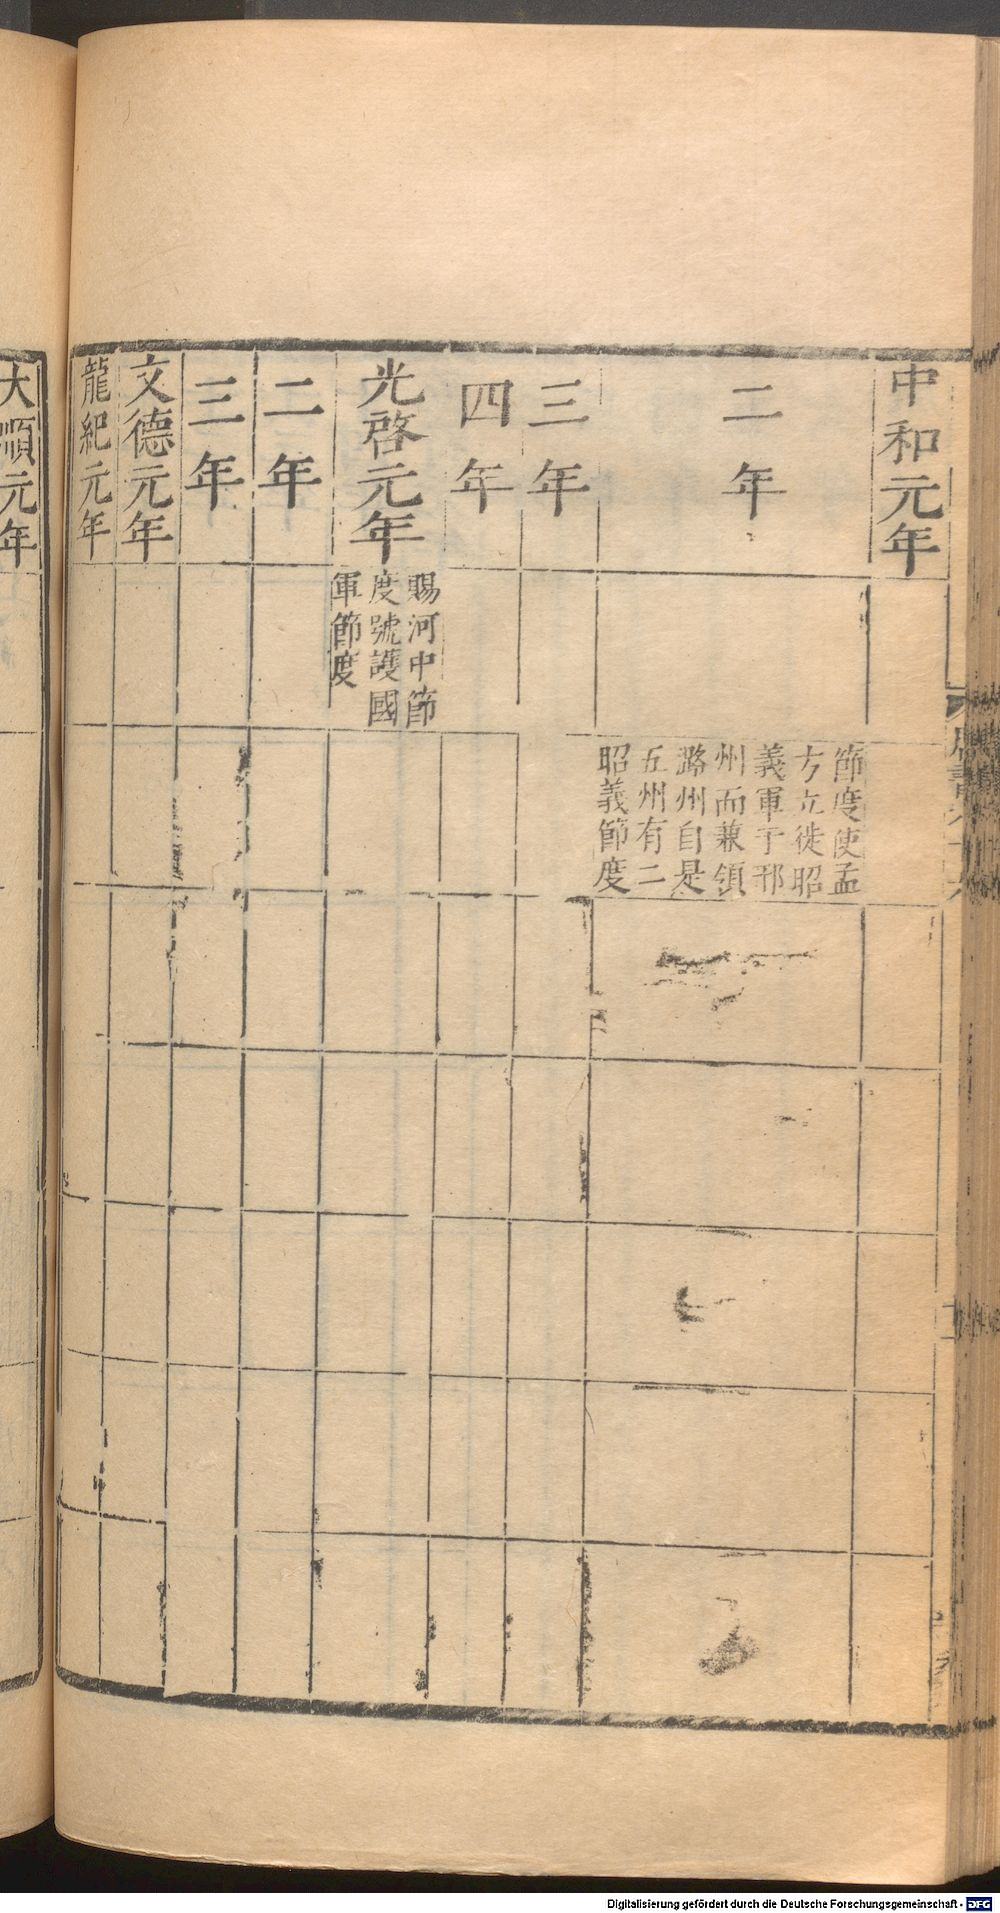 中和元年
二年
節度使孟
方立徙昭
義軍于邢
州而兼領
潞州自是
五州有二
昭義節度
三年
四年
光啓元年
賜河中節
度號護國
軍節度
二年
三年
文德元年
龍紀元年
大順元年
Digitalisierung gefördert durch die Deutsche Forschungsgemeinschaft - DFG